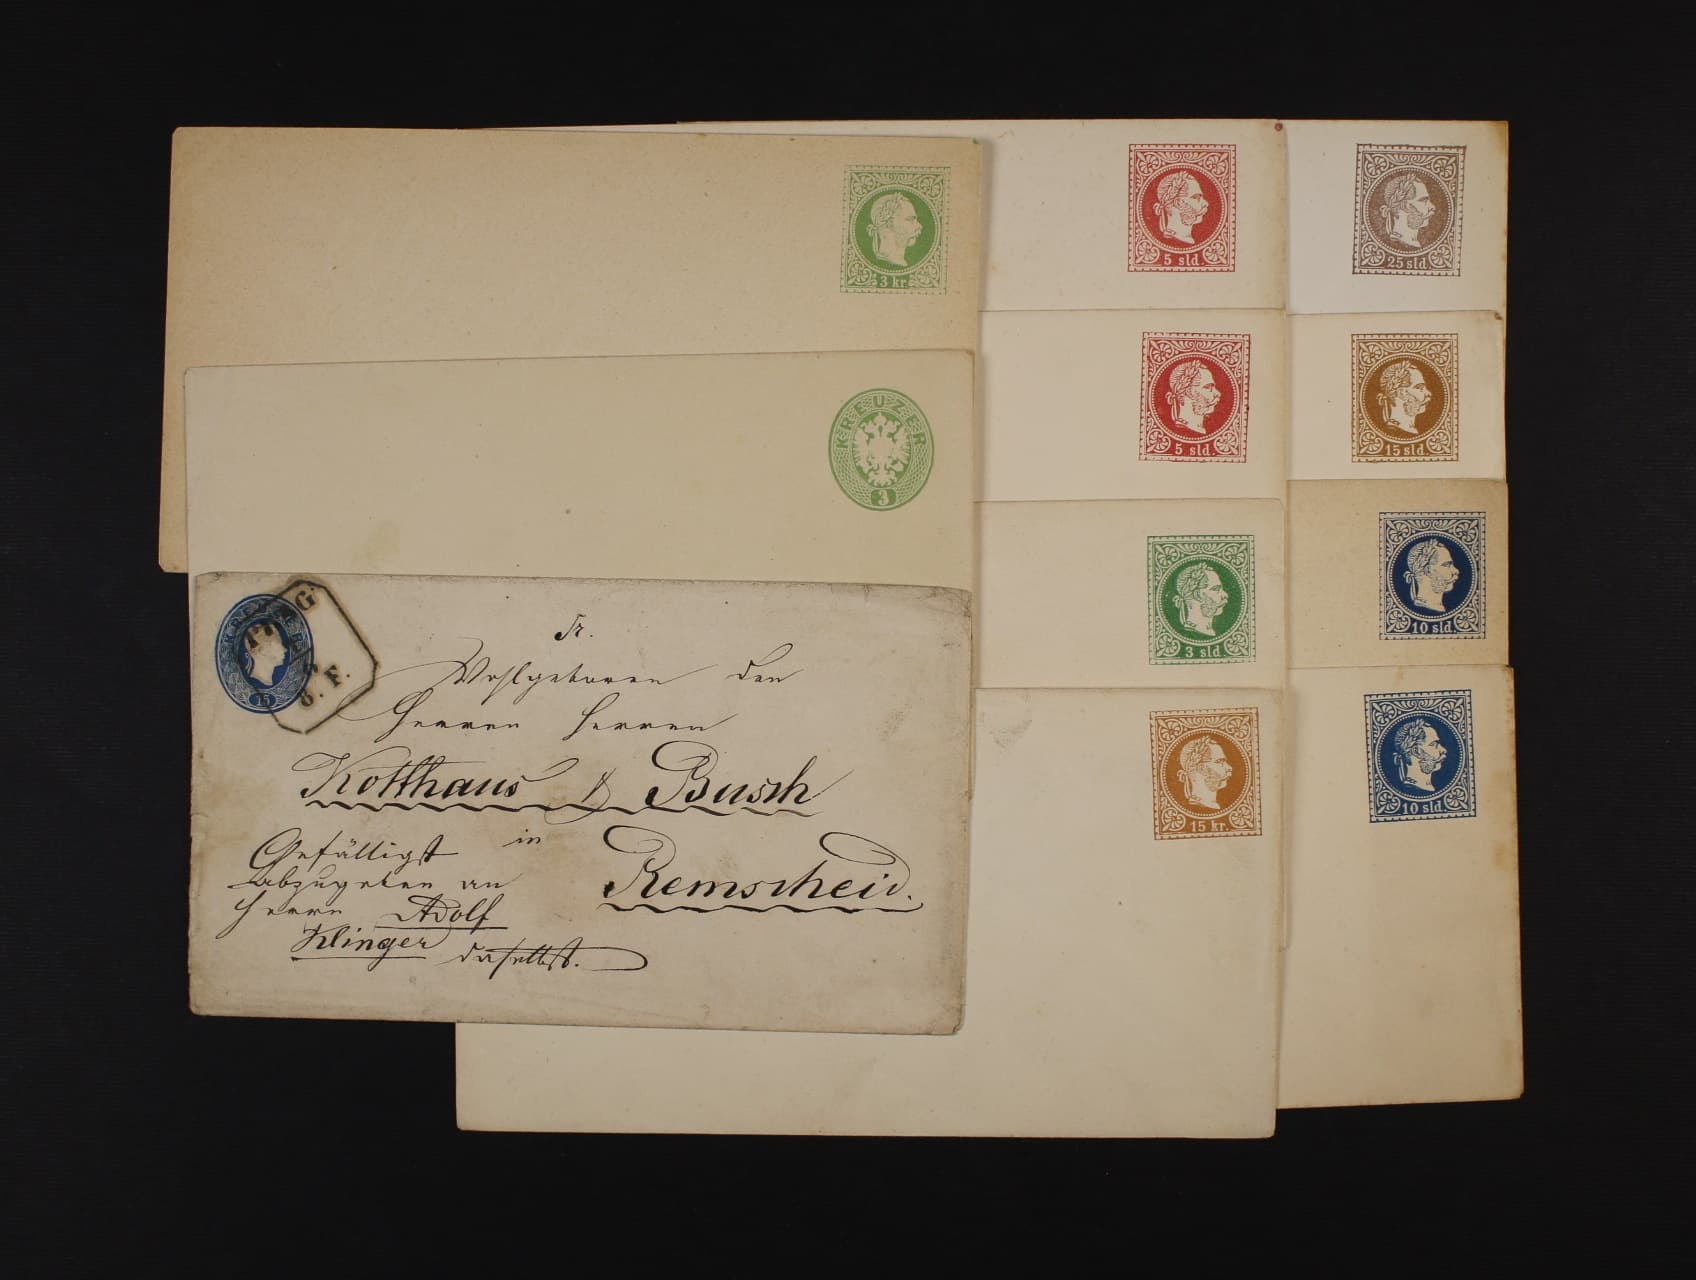 3 kr.
5 sld.
25 sld.
KREUZER
3
5 sld.
15 sld.
3 sld.
10 sld.
15 kr.
10 sld.
KREUZER
15
PRAG
8. F.
Sr.
Wohlgeboren den
Herren Herren
Kotthaus & Busch
in
Remscheid.
Gefälligst
abzugeben an
Herrn Adolf
Klinger daselbst.